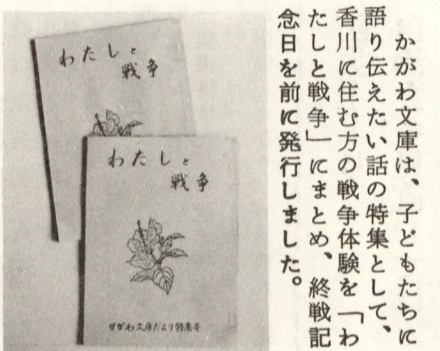 かがわ文庫は、子どもたちに
語り伝えたい話の特集として、
香川に住む方の戦争体験を「わ
たしと戦争」にまとめ、終戦記
念日を前に発行しました。
わたしと
戦争
わたしと
戦争
かがわ文庫だより特集号